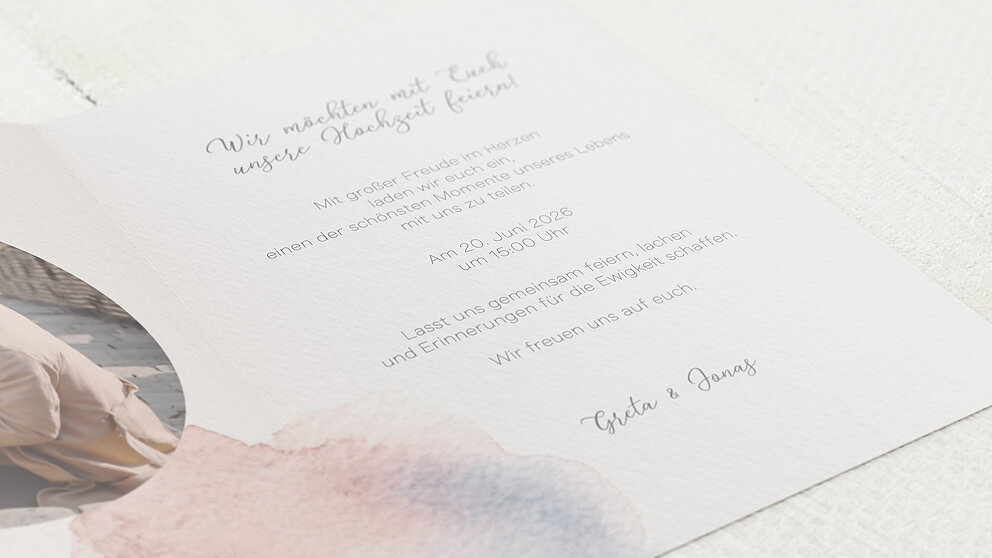 Wir möchten mit Euch
unsere Hochzeit feiern!
Mit großer Freude im Herzen
laden wir euch ein,
einen der schönsten Momente unseres Lebens
mit uns zu teilen.
Am 20. Juni 2026
um 15:00 Uhr
Lasst uns gemeinsam feiern, lachen
und Erinnerungen für die Ewigkeit schaffen.
Wir freuen uns auf euch.
Greta & Jonas